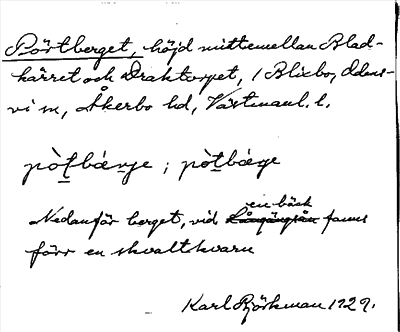 Pörtberget, höjd mittemellan Blad-
kärret och Draktorpet, i Blixbo, Odens-
vi sn, Åkerbo hd, Västmanl. l.
pò̀ṯbærje ; pò̀ṯbæge
en bäck
Nedanför berget, vid fanns
förr en skvaltkvarn
Karl Björkman 1929.